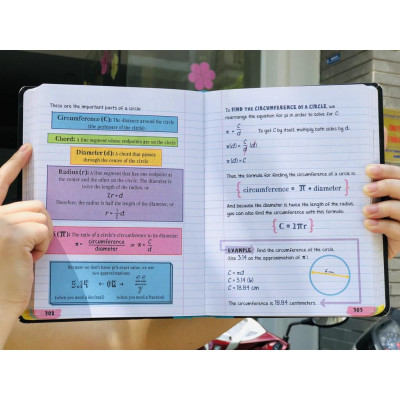 These are the important parts of a circle:
Circumference (C): The distance around the circle
(the perimeter of the circle)
Chord: A line segment whose endpoints are on the circle
Diameter (d): A chord that passes
through the center of the circle
Radius (r): A line segment that has one endpoint at
the center and the other on the circle. The diameter is
twice the length of the radius, or
2r = d
Therefore, the radius is half the length of the diameter, or
r = 1/2 d
(π): The ratio of a circle's circumference to its diameter:
π = circumference/diameter or π = C/d
Because we don't have pi's exact value, we use
two approximations:
3.14 ← OR → 22/7
(when you need a decimal) (when you need a fraction)
302
To FIND THE CIRCUMFERENCE OF A CIRCLE, we
rearrange the equation for pi in order to solve for C.
π = C/d To get C by itself, multiply both sides by d.
π(d) = C/d (d)
π(d) = C
Thus, the formula for finding the circumference of a circle is:
circumference = π • diameter
And because the diameter is twice the length of the radius,
you can also find the circumference with this formula:
C = 2πr
EXAMPLE: Find the circumference of the circle.
Use 3.14 as the approximation of π:
C = πd
C = 3.14 (6)
C = 18.84 cm
The circumference is 18.84 centimeters.
303